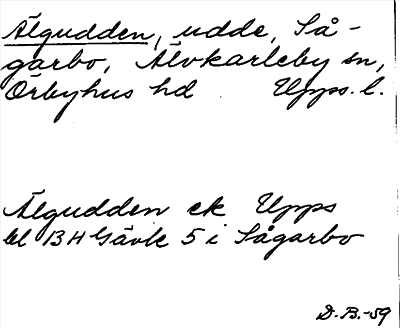 Älgudden, udde, Så-
garbo, Älvkarleby sn,
Örbyhus hd. Upps. l.
Älgudden ek Upps
bl 13H Gävle 5 i Sågarbo
D.B.-59